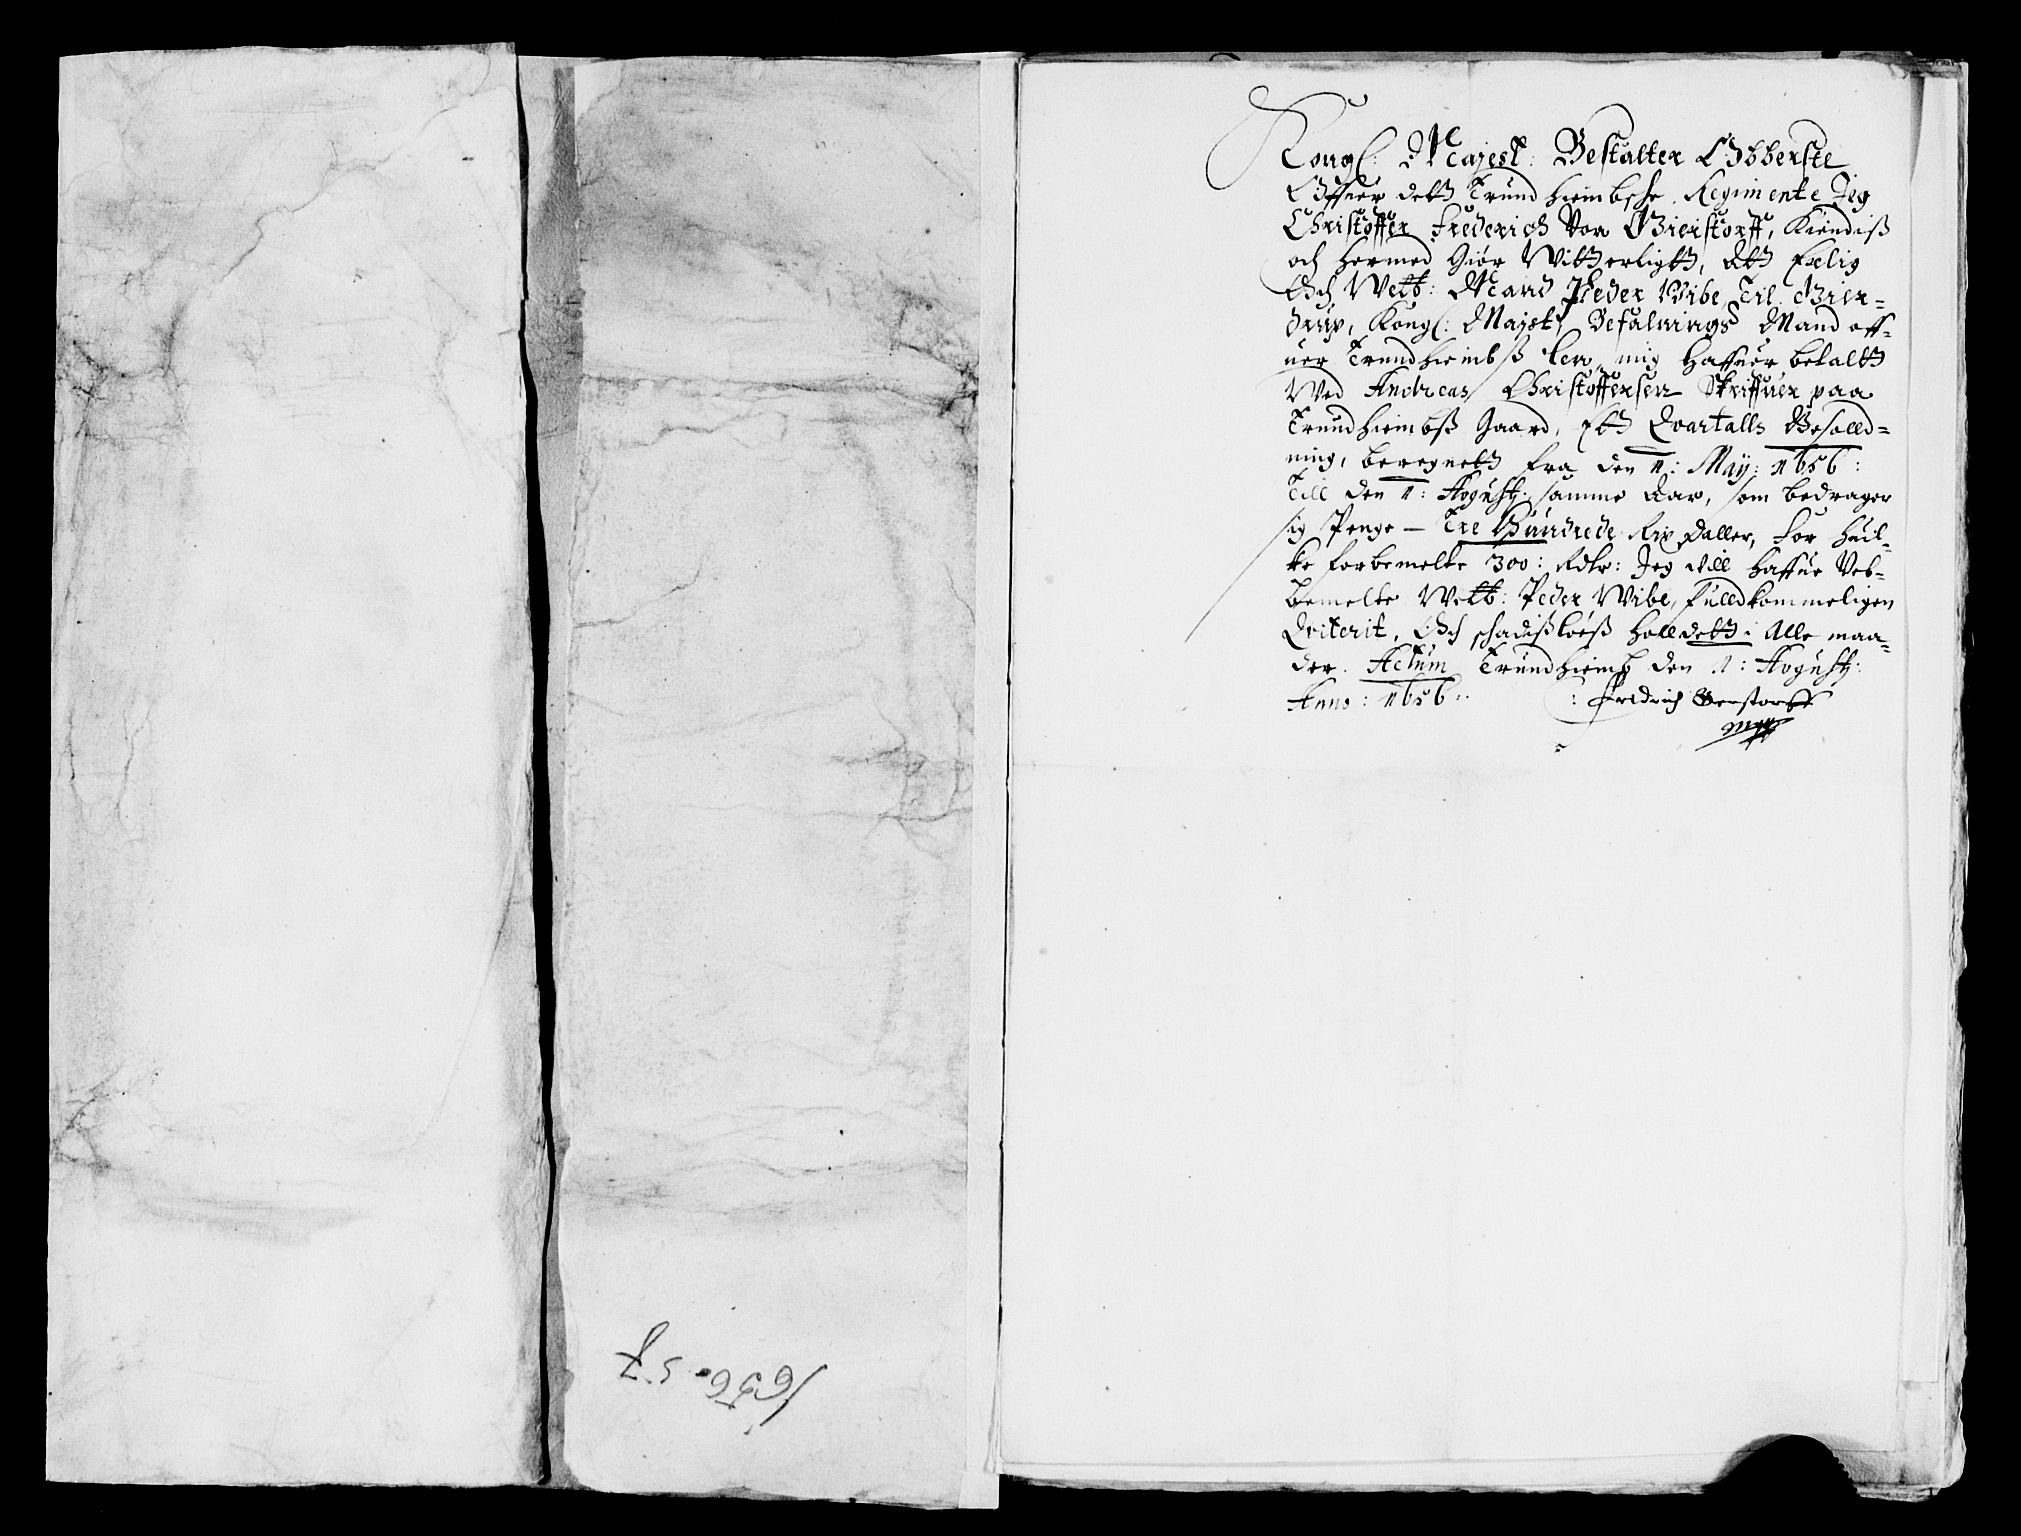 1656. 57
Kongl: Mayest: Bestalter Obberste
Offuer dett Trundhiembsche Regimente Jeg
Christoffer Frederich Von Gierstorff, Kiendiß
och hermed Giör Witterligtt, Att Erlig
Och Welb: Mand Peder Wibe Til Gier-
drup, Kongl: Mayst: Befalnings Mand off-
uer Trundhiembß Lew, mig haffuer betaltt
Wed Andreas Christoffersen Skriffuer paa
Trundhiembß Gaard, Ett Qvartalls Besolld-
ning, beregnett fra den 1: May: 1656:
Till den 1: Augusti: samme Aar, som bedrager
sig Penge — Tre Hundrede Rix Daller, for huil-
ke forbemelte 300: Rdlr: Jeg will haffue Vel-
bemelte Welb: Peder Wibe, fulldkommeligen
Qviterit, Och schadißlöeß holldett i Alle maa-
der. Actum Trundhiemb den 1: Augusti:
Anno: 1656: Fredrich Geerstorff
mpp